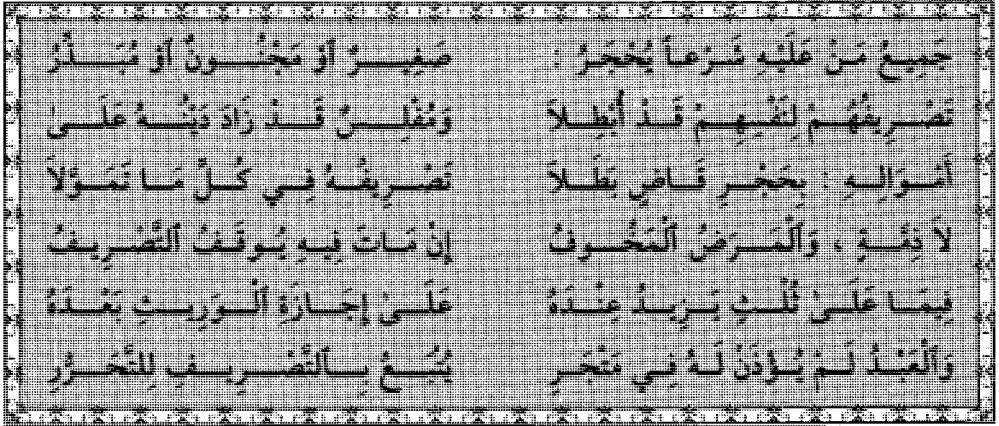 جَمِيعُ مَنْ عَلَيْهِ شَرْعاً يُحْجَرُ : صَغِيرٌ أَوْ مَجْنُونٌ أَوْ مُبَذِّرُ
تَصْرِيفُهُمْ لِنَفْسِهِمْ قَدْ أُبْطِلاَ وَمُفْلِسٌ قَدْ زَادَ دَيْنُهُ عَلَىٰ
أَمْوَالِهِ : بِحَجْرِ قَاضٍ بَطَلاَ تَصْرِيفُهُ فِي كُلِّ مَا تَمَوَّلاَ
لاَ ذِمَّةٍ ، وَٱلْمَرَضُ ٱلْمَخُوفُ إِنْ مَاتَ فِيهِ يُوقَفُ ٱلتَّصْرِيفُ
فِيمَا عَلَىٰ ثُلْثٍ يَزِيدُ عِنْدَهُ عَلَىٰ إِجَازَةِ ٱلْوَرِيثِ بَعْدَهُ
وَٱلْعَبْدُ لَمْ يُؤْذَنْ لَهُ فِي مَتْجَرِ يُتْبَعُ بِٱلتَّصْرِيفِ لِلتَّحَرُّرِ